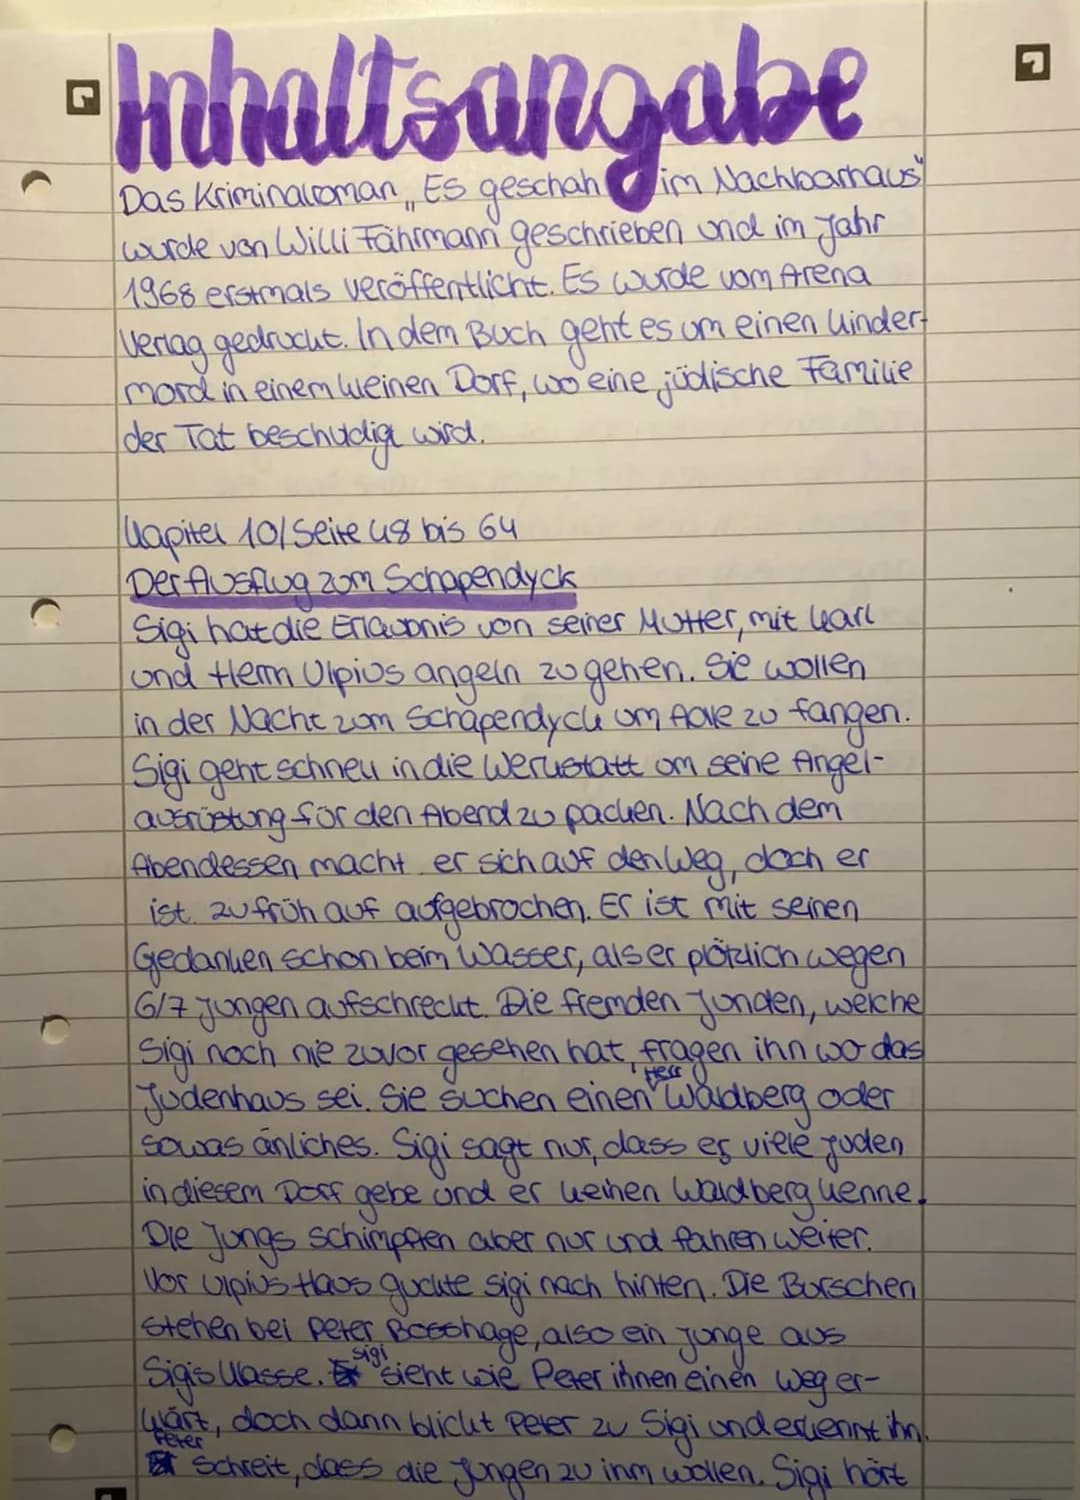 Inhaltsangabe
Das Kriminalroman „Es geschah im Nachbarhaus"
wurde von Willi Fährmann geschrieben und im Jahr
1968 erstmals veröffentlicht. Es wurde vom Arena
Verlag gedruckt. In dem Buch geht es um einen Kinder-
mord in einem kleinen Dorf, wo eine jüdische Familie
der Tat beschudigt wird.
Kapitel 10/Seite 48 bis 64
Der Ausflug zum Schapendyck
Sigi hat die Erlaubnis von seiner Mutter, mit Karl
und Herrn Ulpius angeln zu gehen. Sie wollen
in der Nacht zum Schapendyck um Aale zu fangen.
Sigi geht schnell in die Werkstatt um seine Angel-
ausrüstung für den Abend zu packen. Nach dem
Abendessen macht er sich auf den Weg, doch er
ist zu früh auf aufgebrochen. Er ist mit seinen
Gedanken schon beim Wasser, als er plötzlich wegen
6/7 Jungen aufschreckt. Die fremden Jungen, welche
Sigi noch nie zuvor gesehen hat, fragen ihn wo das
Judenhaus sei. Sie suchen einen Herr Waldberg oder
sowas änliches. Sigi sagt nur, dass es viele Juden
in diesem Dorf gebe und er keinen Waldberg kenne.
Die Jungs schimpften aber nur und fahren weiter.
Vor Ulpius Haus guckte Sigi nach hinten. Die Burschen
stehen bei Peter Bosshage, also ein Junge aus
Sigis Klasse. Sigi sieht wie Peter ihnen einen Weg er-
klärt, doch dann blickt Peter zu Sigi und erkennt ihn.
Peter schreit, dass die Jungen zu ihm wollen. Sigi hört